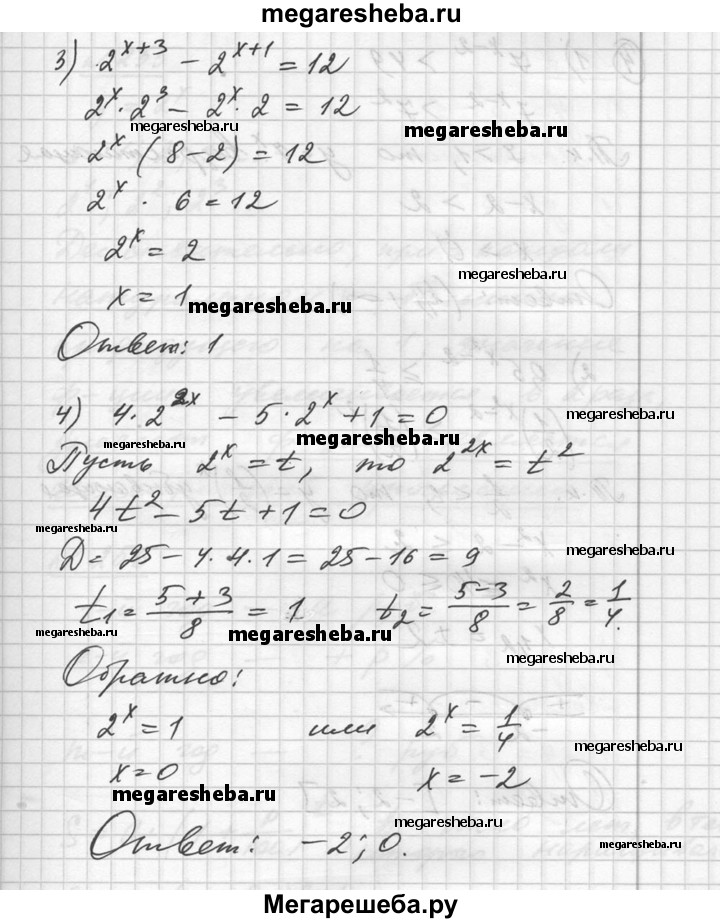 megaresheba.ru
3) 2^{x+3} − 2^{x+1} = 12
2^x · 2^3 − 2^x · 2 = 12
megaresheba.ru megaresheba.ru
2^x (8−2) = 12
2^x · 6 = 12
2^x = 2
megaresheba.ru
x = 1 megaresheba.ru
Ответ: 1
4) 4·2^{2x} − 5·2^x + 1 = 0
megaresheba.ru
megaresheba.ru megaresheba.ru
Пусть 2^x = t, то 2^{2x} = t^2
4t^2 − 5t + 1 = 0
megaresheba.ru
D = 25 − 4·4·1 = 25−16 = 9
megaresheba.ru
t_1 = \frac{5+3}{8} = 1 t_2 = \frac{5−3}{8} = \frac{2}{8} = \frac{1}{4}.
megaresheba.ru megaresheba.ru
megaresheba.ru
Обратно:
2^x = 1 или 2^x = \frac{1}{4}
megaresheba.ru
x = 0 x = −2
megaresheba.ru
megaresheba.ru
Ответ: −2; 0.
Мегарешеба.ру